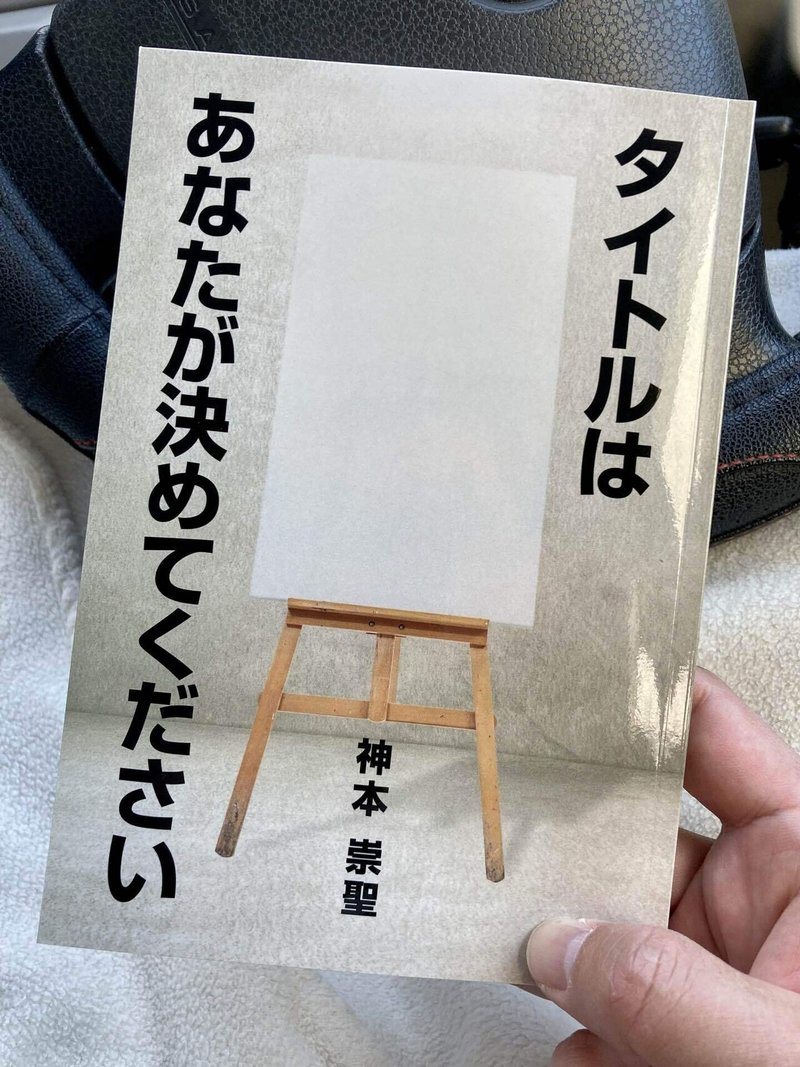 タイトルは
あなたが決めてください
神本 崇聖